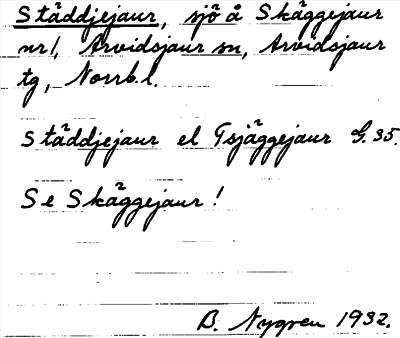 Städdjejaur, sjö å Skäggejaur
nr 1, Arvidsjaur sn, Arvidsjaur
tg, Norrb. l.
Städdjejaur el Tsjäggejaur G. 35.
Se Skäggejaur!
B. Nygren 1932.